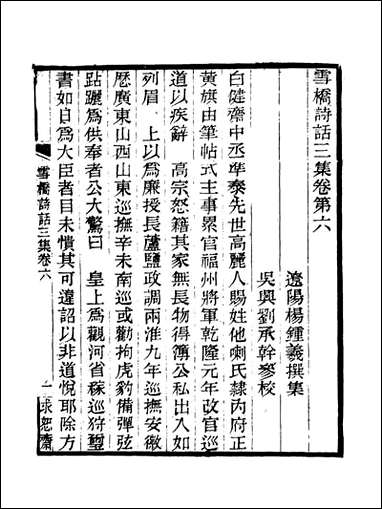 雪橋詩話三集卷第六
遼陽楊鍾羲撰集
吳興劉承幹參校
白健齋中丞準泰先世高麗人賜姓他喇氏隸內府正
黃旗由筆帖式主事累官福州將軍乾隆元年改官巡
道以疾辭　高宗怒籍其家無長物得簿公私出入如
列眉　上以爲廉授長蘆鹽政調兩淮九年巡撫安徽
歷廣東山西山東巡撫辛未南巡或勸拘虎豹備彈弦
跕躧爲供奉者公大驚曰　皇上爲觀河省稼巡狩璽
書如日爲大臣者目未憒其可違詔以非道悅耶除方
雪橋詩話三集卷六　一　求恕齋